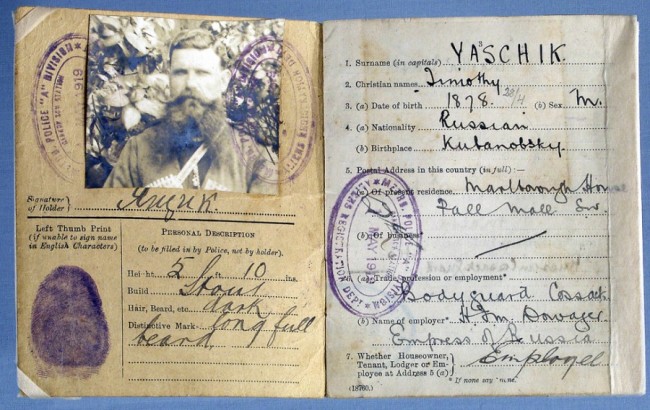 MET. POLICE "A" DIVISION
Signature of Holder }
Left Thumb Print
(if unable to sign name
in English Characters)
PERSONAL DESCRIPTION
(to be filled in by Police, not by holder).
Height 5 ft. 10 ins.
Build Stout
Hair, Beard, etc. dark
Distinctive Mark long full
beard.
1. Surname (in capitals) YASCHIK.
2. Christian names Timothy
3. (a) Date of birth 1878. (b) Sex M.
4. (a) Nationality Russian
(b) Birthplace Kubanobsky.
5. Postal Address in this country (in full):—
(a) Of present residence Marlborough House
Pall Mall S.W.
(b) Of business
(a) Trade, profession or employment*
Bodyguard Cossack
(b) Name of employer* H.I.M. Dowager
Empress of Russia
7. Whether Householder,
Tenant, Lodger or Em-
ployee at Address 5 (a) } Employee
* If none say "none."
(18760.)